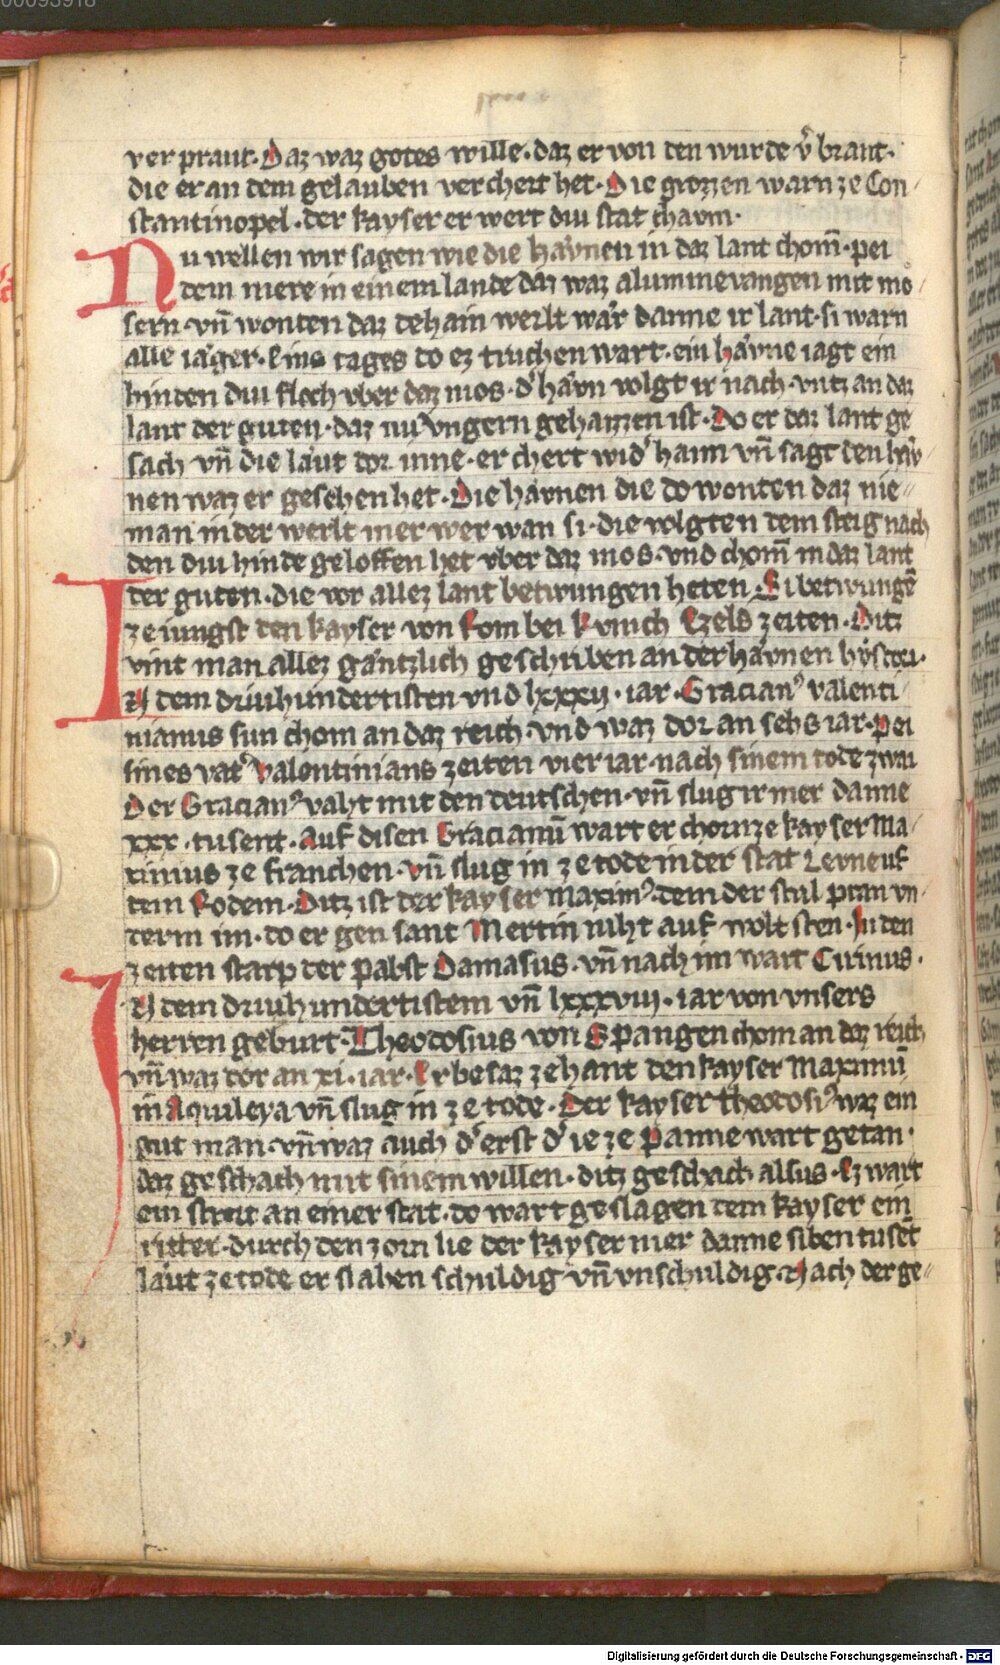 00093918
ver prant · Daz waz gotes wille · daz er von den wurde v̓brant ·
die er an dem gelauben verchert het · Die grozzen warn ze Con
stantinopel · der kayser er wert diu stat chaum ·
Nu wellen wir sagen wie die haͤvnen in daz lant chom̄ · pei
dem mere in einem lande daz waz alumme vangen mit mo
sern · vn̄ wonten daz dehain werlt waͤr danne ir lant · si warn
alle iaͤger · Eins tages do ez truchen wart · ein haͤvne iagt ein
hinden diu floch vber daz mos · d̓ haͤvn volgt ir nach · vntz an daz
lant der guten · daz nu vngern gehaizzen ist · Do er daz lant ge
sach vn̄ die laͤut dor inne · er chert wid̓ haim vn̄ sagt den haͤv
nen waz er gesehen het · Die haͤvnen die do wonten daz nie
man in der werlt mer wer wan si · die volgten dem steig nach
den diu hinde geloffen het vber daz mos · vnd chom̄ in daz lant
der guten · die vor allez lant betwungen heten · Si betwungē
ze iungst den kayser von Rom bei kvnich Ezels zeiten · Ditz
vint man allez gaͤntzlich geschriben an der haͤvnen hystori ·
IN dem driuhundertisten vnd lxxxij · iar · Gracian⁹ valenti
nianus sun chom an daz reich · vnd waz dor an sehs iar · pei
sines vat̓ valentinians zeiten vier iar · nach sinem tode zwai
Der Gracian⁹ vaht mit den deutschen · vn̄ slug ir mer danne
xxx · tusent · Auf disen Gracianū wart erchorn ze kayser Ma
ximus ze franchen · vn̄ slug in ze tode in der stat Leyne uf
dem Rodem · Ditz ist der kayser maxim⁹ · dem der stul pran vn
term im · do er gen sant Mertin niht auf wolt sten · In den
zeiten starp der pabst Damasus · vn̄ nach im wart Cirinus ·
IN dem driuhundertistem vn̄ lxxxviij · iar von vnsers
herren geburt · Theodosius von Spangen chom an daz reich
vn̄ waz dor an xi · iar · Er besaz zehant den kayser Maximū
in Aquileya vn̄ slug in ze tode · Der kayser theodosi⁹ waz ein
gut man · vn̄ waz auch d̓ erst d̓ ie ze panne wart getan ·
daz geschach mit sinem willen · ditz geschach alsus · Ez wart
ein streit an einer stat · do wart geslagen dem kayser ein
ritter · durch den zorn lie der kayser mer danne siben tusēt
laͤut ze tode er slahen schuldig vn̄ vnschuldig · Nach der ge
Digitalisierung gefördert durch die Deutsche Forschungsgemeinschaft - DFG